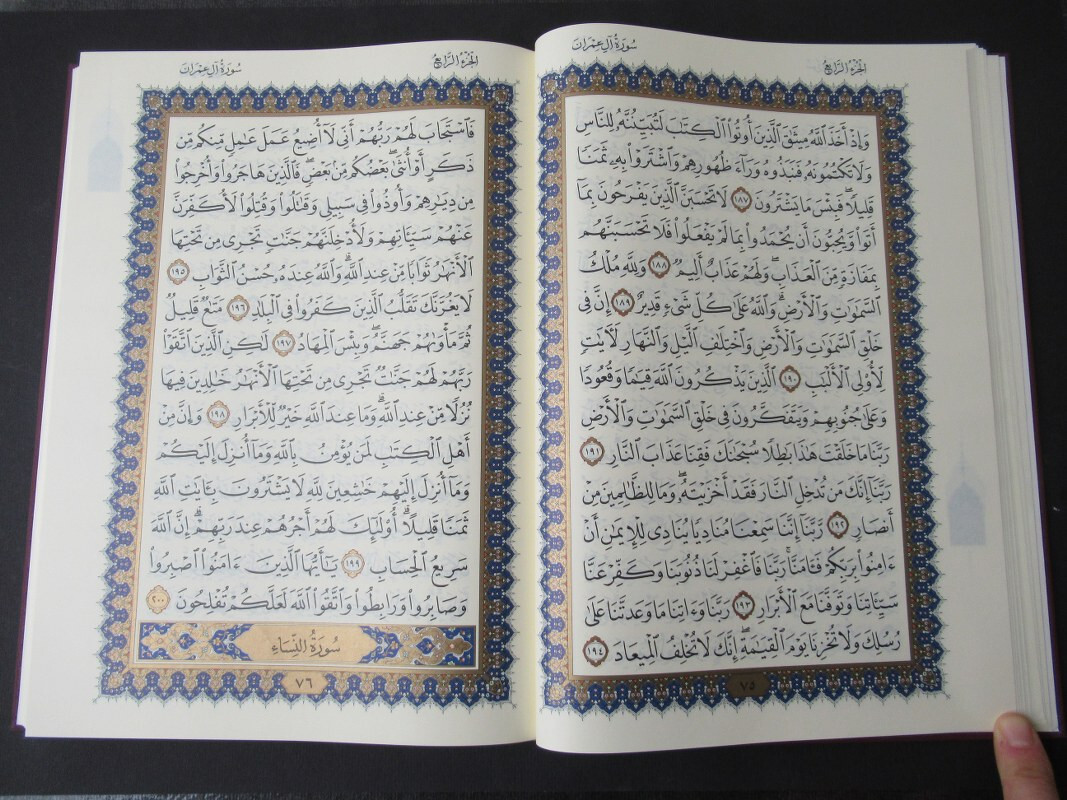 سُورَةُ آلِ عِمْرَانَ
الجُزْءُ الرَّابِعُ
وَإِذْ أَخَذَ ٱللَّهُ مِيثَٰقَ ٱلَّذِينَ أُوتُوا۟ ٱلْكِتَٰبَ لَتُبَيِّنُنَّهُۥ لِلنَّاسِ
وَلَا تَكْتُمُونَهُۥ فَنَبَذُوهُ وَرَآءَ ظُهُورِهِمْ وَٱشْتَرَوْا۟ بِهِۦ ثَمَنًا
قَلِيلًا ۖ فَبِئْسَ مَا يَشْتَرُونَ ١٨٧ لَا تَحْسَبَنَّ ٱلَّذِينَ يَفْرَحُونَ بِمَآ
أَتَوا۟ وَّيُحِبُّونَ أَن يُحْمَدُوا۟ بِمَا لَمْ يَفْعَلُوا۟ فَلَا تَحْسَبَنَّهُم
بِمَفَازَةٍ مِّنَ ٱلْعَذَابِ ۖ وَلَهُمْ عَذَابٌ أَلِيمٌ ١٨٨ وَلِلَّهِ مُلْكُ
ٱلسَّمَٰوَٰتِ وَٱلْأَرْضِ ۗ وَٱللَّهُ عَلَىٰ كُلِّ شَىْءٍ قَدِيرٌ ١٨٩ إِنَّ فِى
خَلْقِ ٱلسَّمَٰوَٰتِ وَٱلْأَرْضِ وَٱخْتِلَٰفِ ٱلَّيْلِ وَٱلنَّهَارِ لَءَايَٰتٍ
لِّأُو۟لِى ٱلْأَلْبَٰبِ ١٩٠ ٱلَّذِينَ يَذْكُرُونَ ٱللَّهَ قِيَٰمًا وَقُعُودًا
وَعَلَىٰ جُنُوبِهِمْ وَيَتَفَكَّرُونَ فِى خَلْقِ ٱلسَّمَٰوَٰتِ وَٱلْأَرْضِ
رَبَّنَا مَا خَلَقْتَ هَٰذَا بَٰطِلًا سُبْحَٰنَكَ فَقِنَا عَذَابَ ٱلنَّارِ ١٩١
رَبَّنَآ إِنَّكَ مَن تُدْخِلِ ٱلنَّارَ فَقَدْ أَخْزَيْتَهُۥ ۖ وَمَا لِلظَّٰلِمِينَ مِنْ
أَنصَارٍ ١٩٢ رَّبَّنَآ إِنَّنَا سَمِعْنَا مُنَادِيًا يُنَادِى لِلْإِيمَٰنِ أَنْ
ءَامِنُوا۟ بِرَبِّكُمْ فَـَٔامَنَّا ۚ رَبَّنَا فَٱغْفِرْ لَنَا ذُنُوبَنَا وَكَفِّرْ عَنَّا
سَيِّـَٔاتِنَا وَتَوَفَّنَا مَعَ ٱلْأَبْرَارِ ١٩٣ رَبَّنَا وَءَاتِنَا مَا وَعَدتَّنَا عَلَىٰ
رُسُلِكَ وَلَا تُخْزِنَا يَوْمَ ٱلْقِيَٰمَةِ ۗ إِنَّكَ لَا تُخْلِفُ ٱلْمِيعَادَ ١٩٤
٧٥
الجُزْءُ الرَّابِعُ
سُورَةُ آلِ عِمْرَانَ
فَٱسْتَجَابَ لَهُمْ رَبُّهُمْ أَنِّى لَآ أُضِيعُ عَمَلَ عَٰمِلٍ مِّنكُم مِّن
ذَكَرٍ أَوْ أُنثَىٰ ۖ بَعْضُكُم مِّنۢ بَعْضٍ ۖ فَٱلَّذِينَ هَاجَرُوا۟ وَأُخْرِجُوا۟
مِن دِيَٰرِهِمْ وَأُوذُوا۟ فِى سَبِيلِى وَقَٰتَلُوا۟ وَقُتِلُوا۟ لَأُكَفِّرَنَّ
عَنْهُمْ سَيِّـَٔاتِهِمْ وَلَأُدْخِلَنَّهُمْ جَنَّٰتٍ تَجْرِى مِن تَحْتِهَا
ٱلْأَنْهَٰرُ ثَوَابًا مِّنْ عِندِ ٱللَّهِ ۗ وَٱللَّهُ عِندَهُۥ حُسْنُ ٱلثَّوَابِ ١٩٥
لَا يَغُرَّنَّكَ تَقَلُّبُ ٱلَّذِينَ كَفَرُوا۟ فِى ٱلْبِلَٰدِ ١٩٦ مَتَٰعٌ قَلِيلٌ
ثُمَّ مَأْوَىٰهُمْ جَهَنَّمُ ۚ وَبِئْسَ ٱلْمِهَادُ ١٩٧ لَٰكِنِ ٱلَّذِينَ ٱتَّقَوْا۟
رَبَّهُمْ لَهُمْ جَنَّٰتٌ تَجْرِى مِن تَحْتِهَا ٱلْأَنْهَٰرُ خَٰلِدِينَ فِيهَا
نُزُلًا مِّنْ عِندِ ٱللَّهِ ۗ وَمَا عِندَ ٱللَّهِ خَيْرٌ لِّلْأَبْرَارِ ١٩٨ وَإِنَّ مِنْ
أَهْلِ ٱلْكِتَٰبِ لَمَن يُؤْمِنُ بِٱللَّهِ وَمَآ أُنزِلَ إِلَيْكُمْ
وَمَآ أُنزِلَ إِلَيْهِمْ خَٰشِعِينَ لِلَّهِ لَا يَشْتَرُونَ بِـَٔايَٰتِ ٱللَّهِ
ثَمَنًا قَلِيلًا ۗ أُو۟لَٰٓئِكَ لَهُمْ أَجْرُهُمْ عِندَ رَبِّهِمْ ۗ إِنَّ ٱللَّهَ
سَرِيعُ ٱلْحِسَابِ ١٩٩ يَٰٓأَيُّهَا ٱلَّذِينَ ءَامَنُوا۟ ٱصْبِرُوا۟
وَصَابِرُوا۟ وَرَابِطُوا۟ وَٱتَّقُوا۟ ٱللَّهَ لَعَلَّكُمْ تُفْلِحُونَ ٢٠٠
سُورَةُ النِّسَاءِ
٧٦